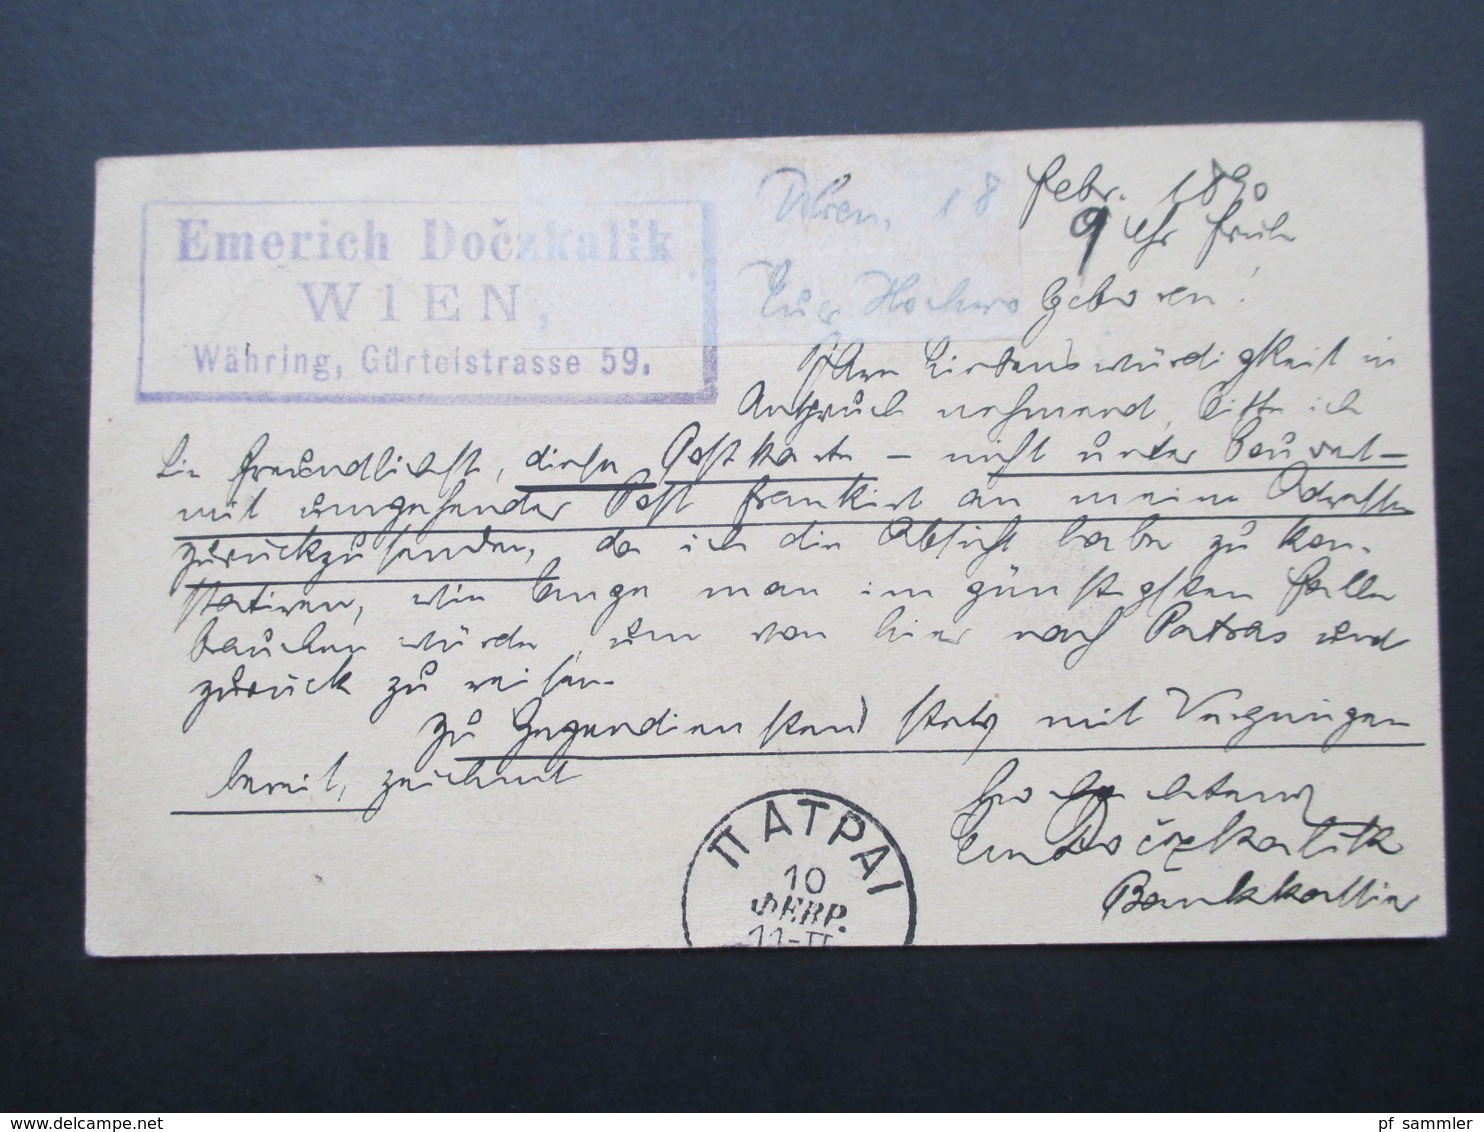 Emerich Dočzkalik
WIEN,
Währing, Gürtelstrasse 59.
Wien, 18 Febr. 1890
9 Uhr früh
Euer Hochwo geboren!
Ihre Liebenswürdigkeit in
Anspruch nehmend, bitte ich
Sie freundlichst, diese Postkarte – nicht unter Couvert –
mit umgehender Post frankirt an meine Adresse
zurückzusenden, da ich die Absicht habe zu kon-
statiren, wie lange man im günstigsten Falle
brauchen würde, um von hier nach Patras und
zurück zu reisen.
Zu Gegendiensten stets mit Vergnügen
bereit, zeichnet
Hochachtend
Em Dočzkalik
Bankkassier
ΠΑΤΡΑΙ
10
ΦΕΒΡ.
11-Π
delcampe.net
pf_sammler